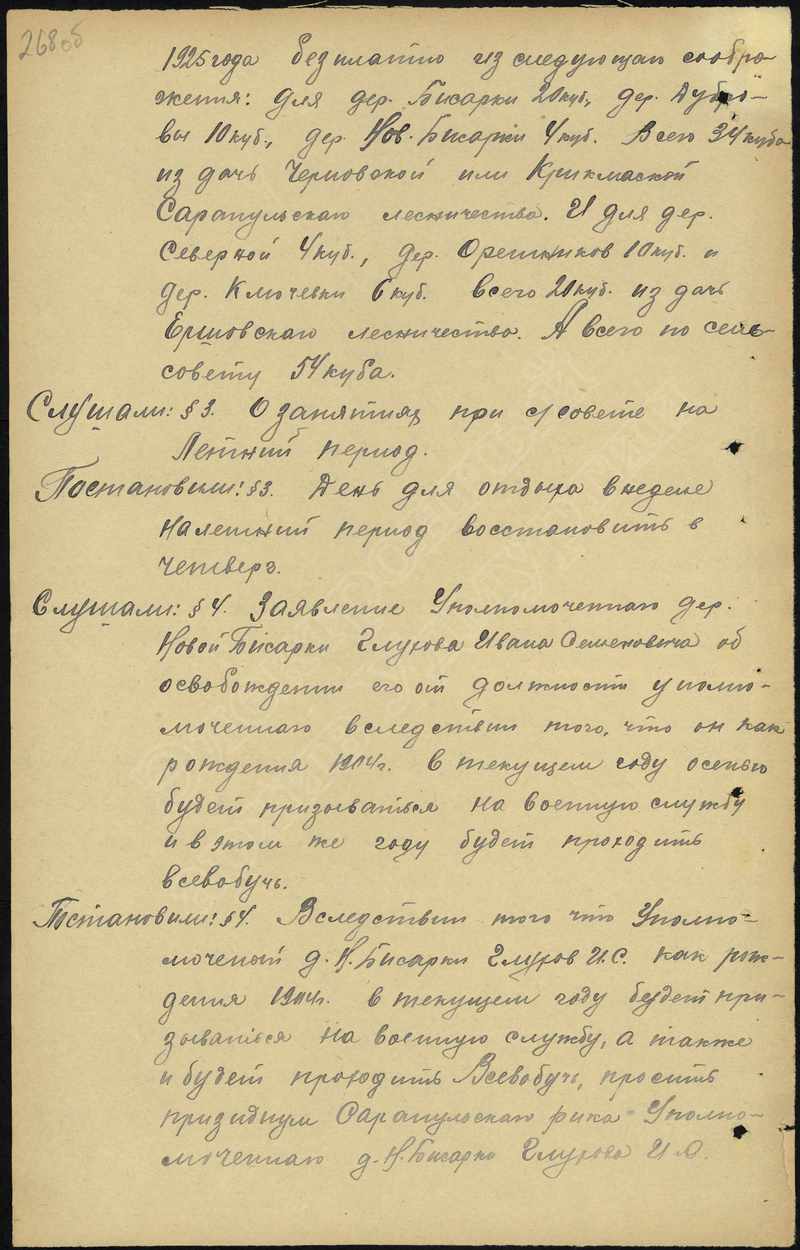 268 об
1925 года безплатно из следующаго сообра-
жения: для дер. Бисарки 20 куб., дер. Дубро-
вы 10 куб., дер. Нов. Бисарки 4 куб. Всего 34 куба
из дачь Черновской или Крыкмаской
Сарапульскаго лесничества. И для дер.
Северной 4 куб., дер. Орешников 10 куб. и
дер. Ключевки 6 куб. всего 20 куб. из дачь
Ершовскаго лесничества. А всего по сель-
совету 54 куба.
Слушали: § 3. О занятиях при с/совете на
Летний период.
Постановили: § 3. День для отдыха в неделе
на летний период восстановить в
четверг.
Слушали: § 4. Заявление Уполномоченнаго дер.
Новой Бисарки Глухова Ивана Семеновича об
освобождении его от должности уполно-
моченнаго вследствии того, что он как
рождения 1904 г. в текущем году осенью
будет призываться на военную службу
и в этом же году будет проходить
всевобучь.
Постановили: § 4. Вследствии того что Уполно-
моченый д. Н. Бисарки Глухов И.С. как рож-
дения 1904 г. в текущем году будет при-
зываться на военную службу, а также
и будет проходить Всевобучь, просить
призидиум Сарапульскаго рика Уполно-
моченнаго д. Н. Бисарки Глухова И.С.